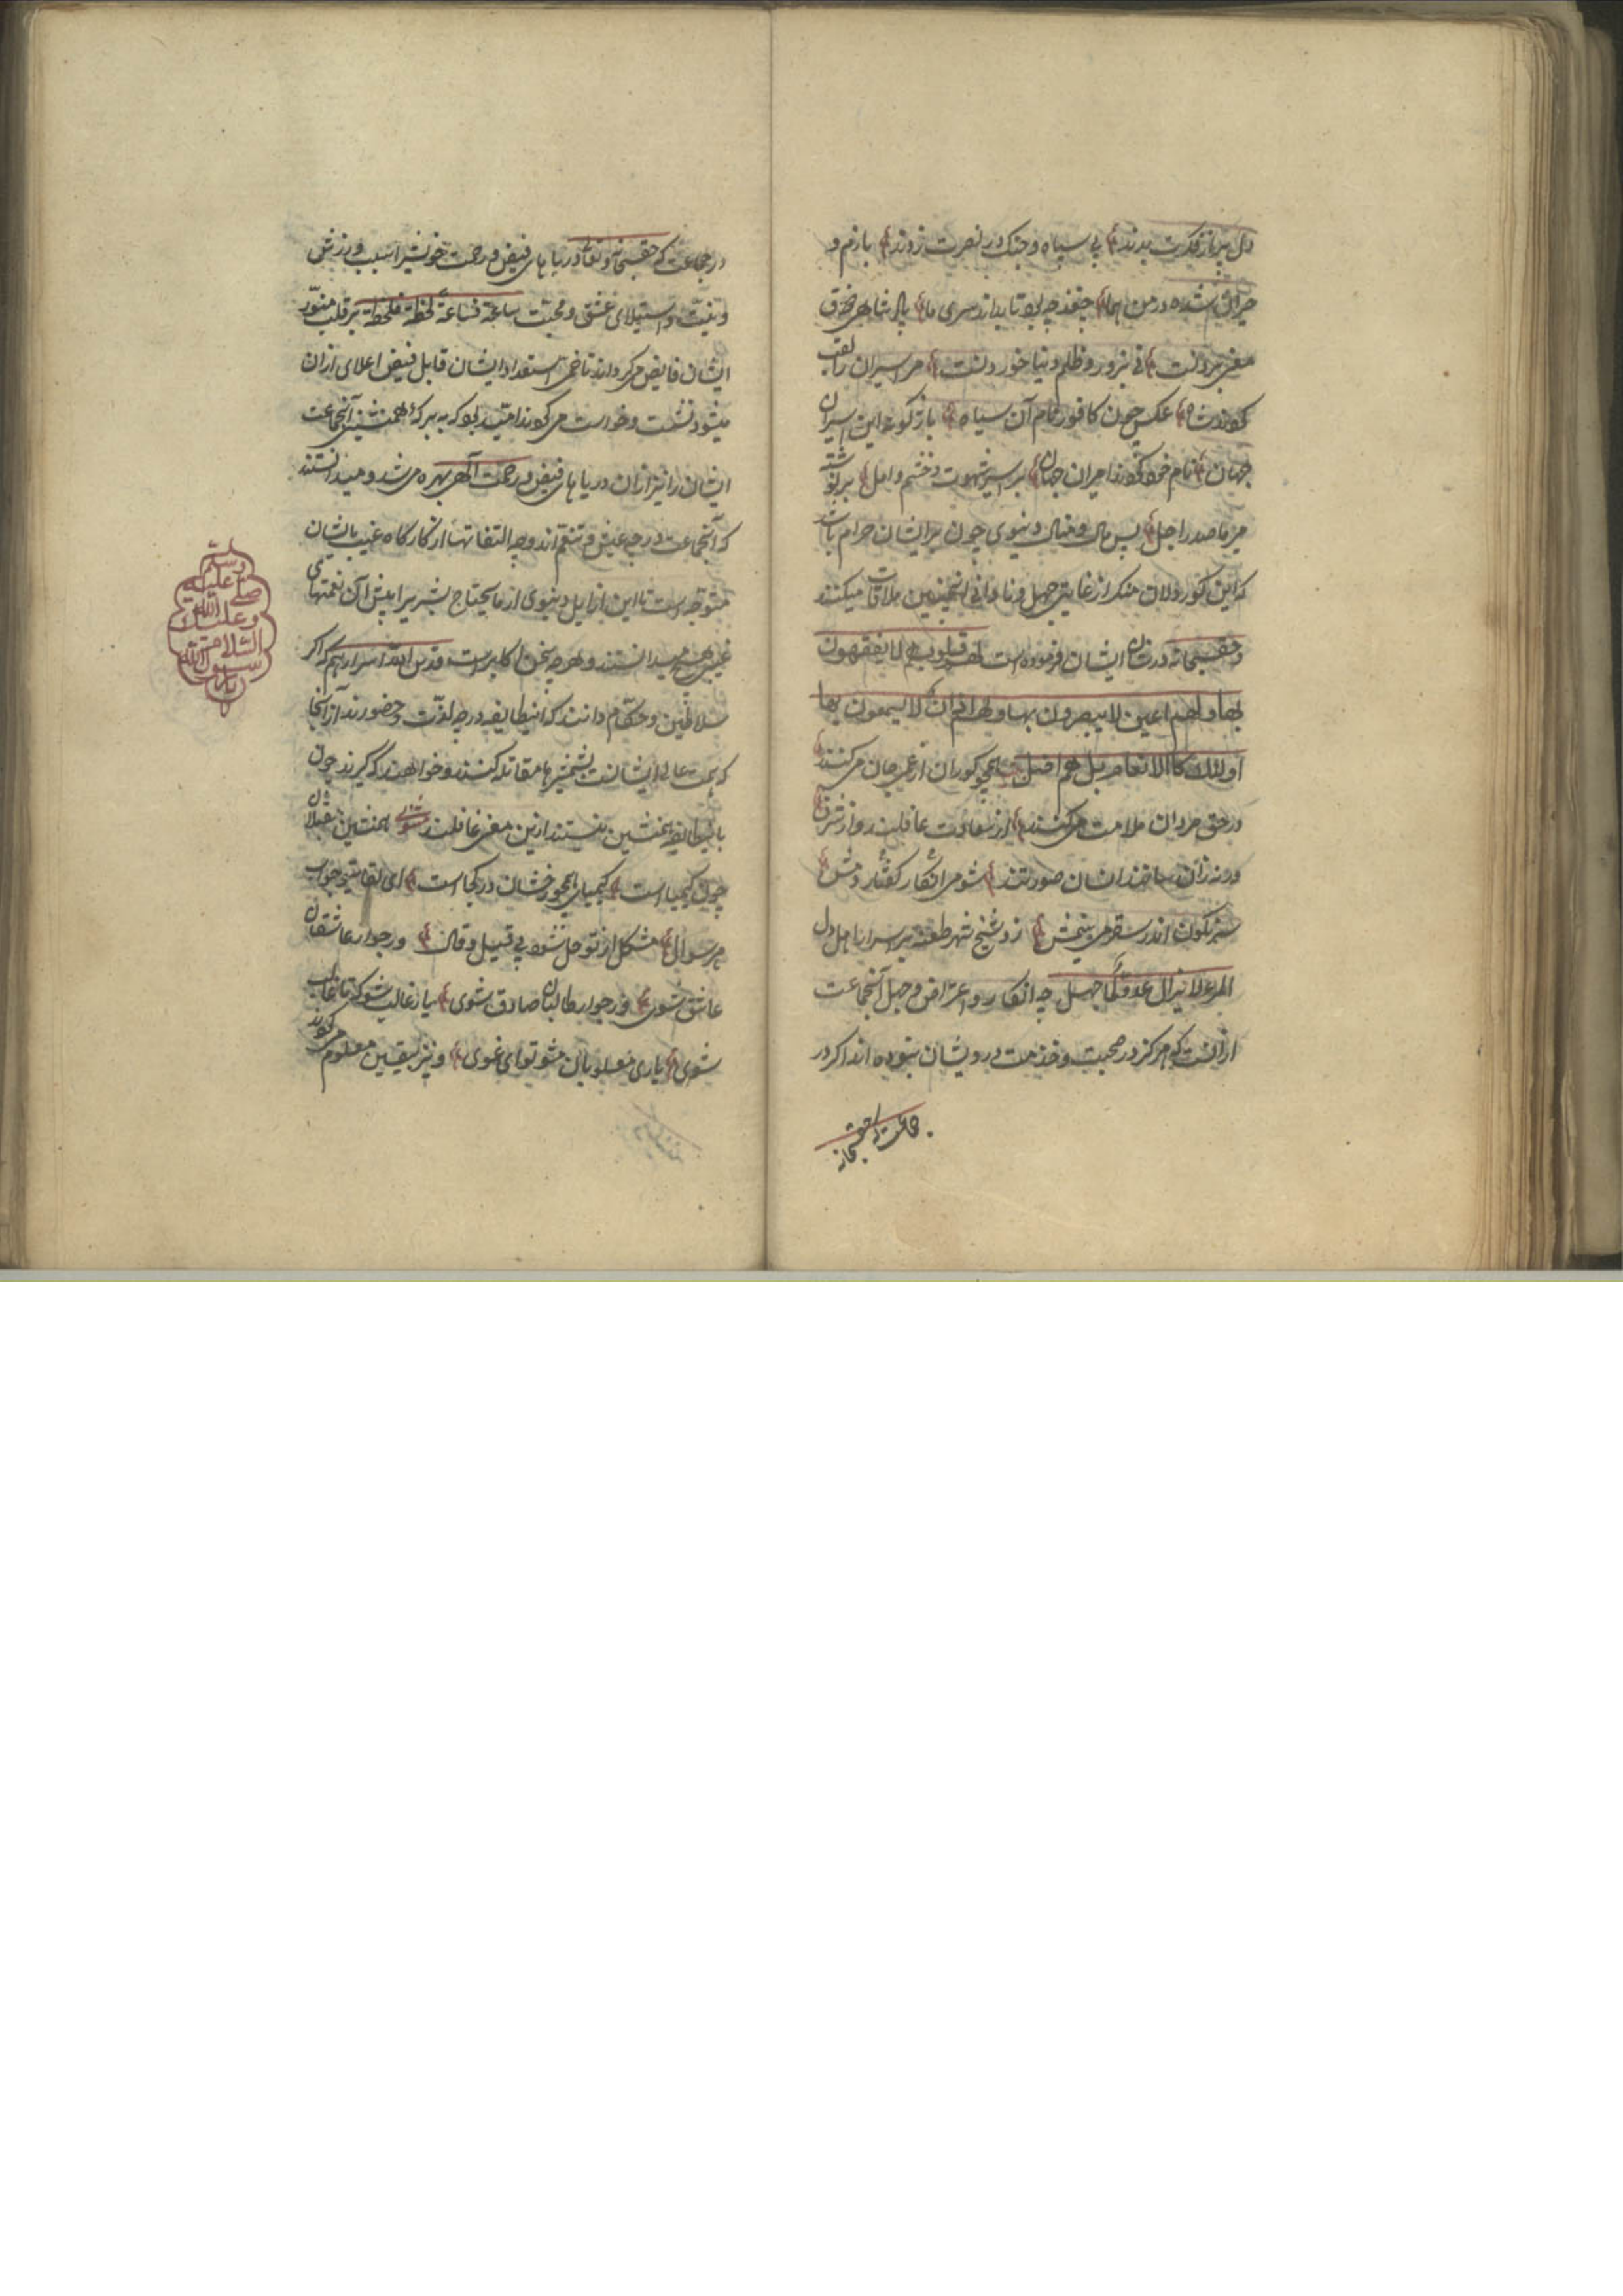 دل پر از قدرت بدند بی سپاه و جنک در نصرت زدند بازم و
حیران شده در من
مغزی نی زور و ظلم دنیا خور دلست مر اسیران را لقب
کردند شاه عکس چون کافور نام آن سیاه بازکونه این اسیران
جهان نام خود کردند امیران جهان بر اسیر شهوت و خشم و امل بر نوشته
میر یا صدر اجل پس مال و منال دنیوی چون بر ایشان حرام باشد
که این کور دلان منکر از غایت جهل و نادانی اینچنین ملاقات میکنند
و حقسبحانه در شان ایشان فرموده است لهم قلوب لا یفقهون
بها و لهم اعین لا یبصرون بها و لهم اذان لا یسمعون بها
اولئک کا الانعام بل هم اضل همچو کوران از عمی جان می کنند
در حق مردان ملامت می کنند از سعادت غافلند و از شرف
ورنه زآن انسان صورتند شومی انکار کفتار
سرنکون اندر سقر می بینمش زد شیخ شهر طعنه بر اسرار اهل دل
المرء لا یزال عدوا لما جهل چه انکار و اعتراض و جهل آنجماعت
از آنست که هرکز در صحبت و خدمت درویشان نبوده اند اکر در
جماعت که حقسبحانه
در جماعت که حقسبحانه و تعالی دریا های فیض و رحمت خویشرا بسبب ورزش
و نیت و استیلای عشق و محبت ساعة فساعة لحظة فلحظة بر قلب منور
ایشان فایض می کرداند تا خمی استعداد ایشان قابل فیض اعلای از آن
میشود نشست و خواست می کردند امید بود که به برکه همنشینی آنجماعت
ایشان را نیز از آن دریا های فیض و رحمت آلهی بهره می شد و میدانستند
که آنجماعت در چه عیش و تنعم اند و چه التفاتها از کارکاه غیب بایشان
متوجه است تا این ارذایل دنیوی از مایحتاج بشریرا پیش آن نعمتهای
غیبی هیچ میدانستند و هر چه سخن اکابر است قدس الله اسرارهم که اکر
سلاطین و حکام دانند که اینطایفه در چه لذت و حضورند از آنجا
که همت عالی ایشانست بشمشیرها مقاتله کنند و خواهند که کیرند چون
باینطایفه همنشین نیستند ازین معنی غافلند مثنوی همنشین مقبلان
چون کیمیا است کیمیای همچو خشان در کجا است ای لقای تو جواب
هر سوال مشکل از تو حل شود بی قیل و قال و ر جوار عاشقان
عاشق شوی در جوار طالبان صادق شوی یار غالب شو که تا غالب
شوی یاری مغلوبان مشو تو ای غوی و نیز بیقین معلوم می کردد
وسلم
صلی الله علیه
وعلیک
السلام
یا رسول الله